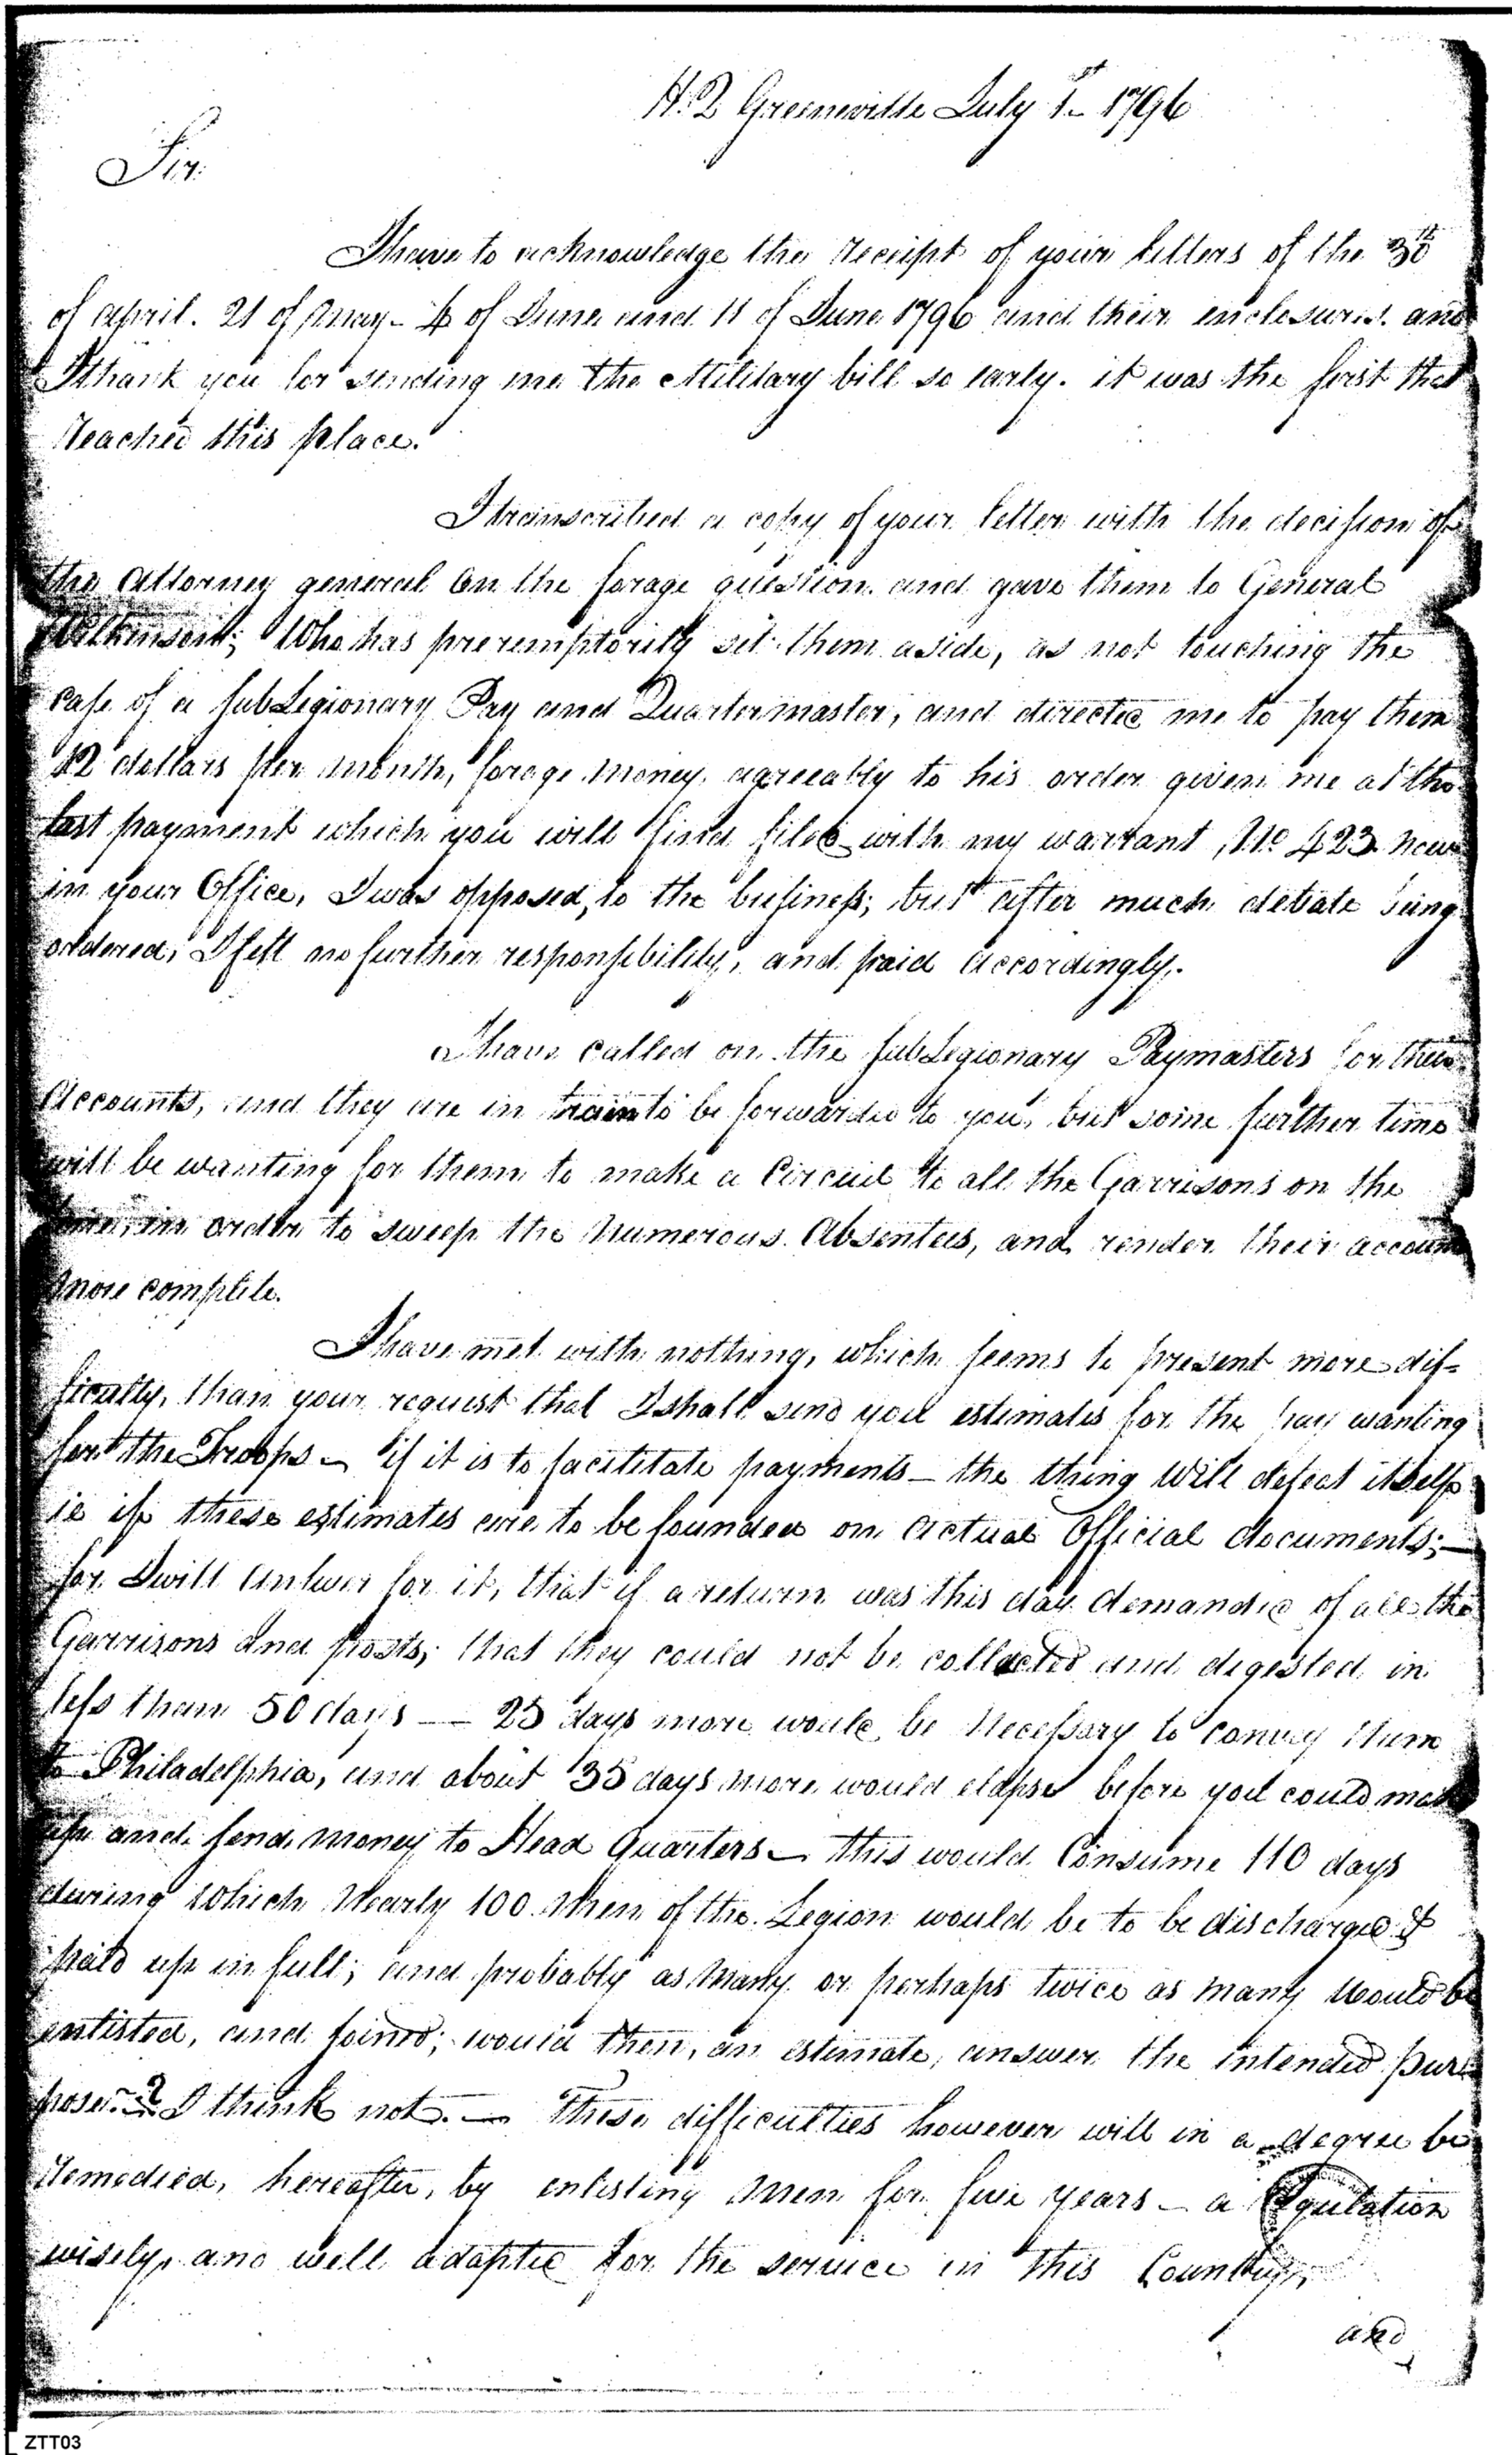 H. Q Greeneville July 1st 1796
Sir.
I have to acknowledge the receipt of your letters of the 30th
of april. 21 of may - 4 of June and 11 of June 1796 and their enclosures. and
I thank you for sending me the Military bill so early. it was the first that
reached this place.
I transcribed a copy of your letter with the decission of
the Attorney general on the forage question. and gave them to General
Wilkinson; Who has preremptorily set them aside, as not touching the
case of a subLegionary Pay and Quartermaster, and directed me to pay them
12 dollars per month, forage money, agreeably to his order given me at the
last payment which you will find filed with my warrant, No 423 now
in your Office, I was opposed, to the business; but after much debate being
ordered, I felt no further responsibility, and paid accordingly.
I have called on the subLegionary Paymasters for their
Accounts, and they are in train to be forwarded to you, but some further time
will be wanting for them to make a Circuit to all the Garrisons on the
in order to sweep the Numerous Absentees, and render their accounts
more complete.
I have met with nothing, which seems to present more dif=
ficulty, than your request that I shall send you estimates for the pay wanting
for the Troops - if it is to facilitate payments - the thing will defeat itself
ie if these estimates are to be founded on actual Official documents; -
for I will answer for it, that if a return was this day demanded of all the
Garrisons and posts; that they could not be collected and digested in
less than 50 days — 25 days more would be Necessary to convey them
to Philadelphia, and about 35 days more would elapse before you could make
up and send money to Head Quarters - this would Consume 110 days
during which Nearly 100 Men of the Legion would be to be discharged &
paid up in full; and probably as Many or perhaps twice as many would be
enlisted, and joined; would then, an estimate, answer the intended pur=
pose. ? I think not. — These difficulties however will in a degree be
remedied, hereafter, by enlisting Men for five years - a regulation
wisely, and well adapted for the service in this Country,
and
ZTT03